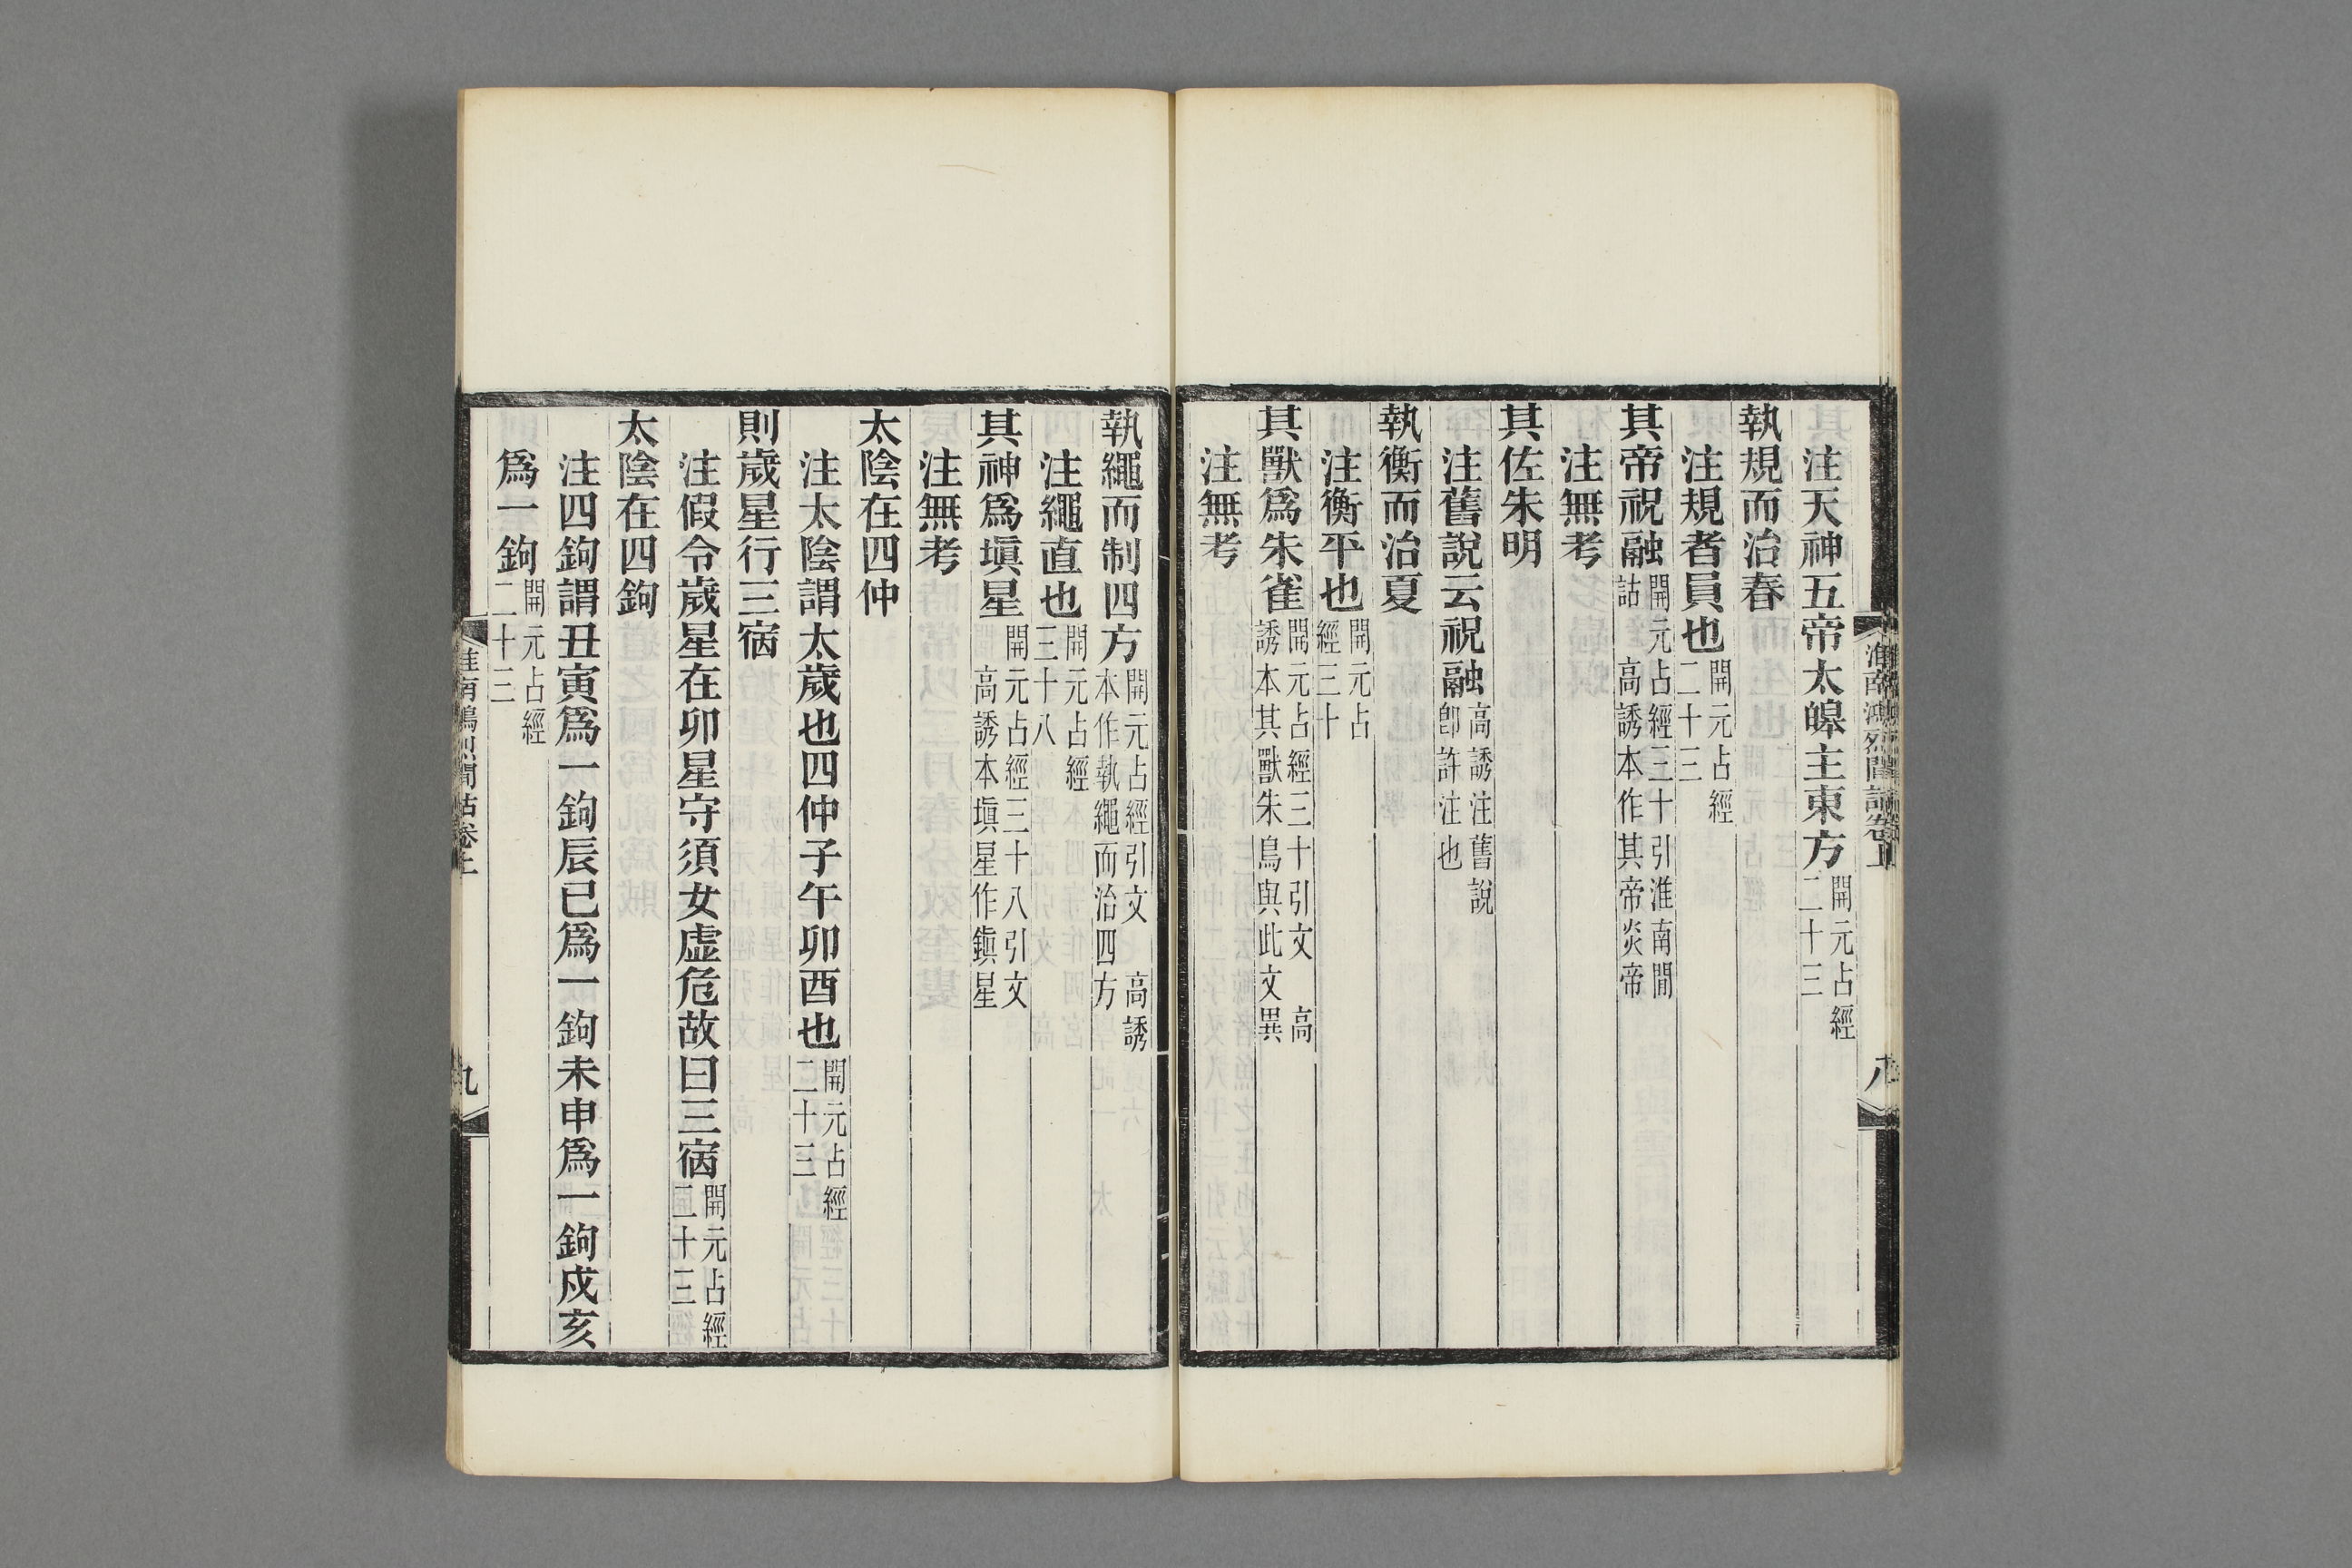 注天神五帝太皞主東方開元占經二十三
執規而治春
注規者員也開元占經二十三
其帝祝融開元占經三十引淮南閒詁 高誘本作其帝炎帝
注無考
其佐朱明
注舊說云祝融高誘注舊說卽許注也
執衡而治夏
注衡平也開元占經三十
其獸爲朱雀開元占經三十引文 高誘本其獸朱鳥與此文異
注無考
淮南鴻烈閒詁卷上
八
執繩而制四方開元占經引文 高誘本作執繩而治四方
注繩直也開元占經三十八
其神爲塡星開元占經三十八引文 高誘本塡星作鎭星
注無考
太陰在四仲
注太陰謂太歲也四仲子午卯酉也開元占經二十三
則歲星行三宿
注假令歲星在卯星守須女虛危故曰三宿開元占經二十三
太陰在四鉤
注四鉤謂丑寅爲一鉤辰巳爲一鉤未申爲一鉤戌亥
爲一鉤開元占經二十三
淮南鴻烈閒詁卷上
九